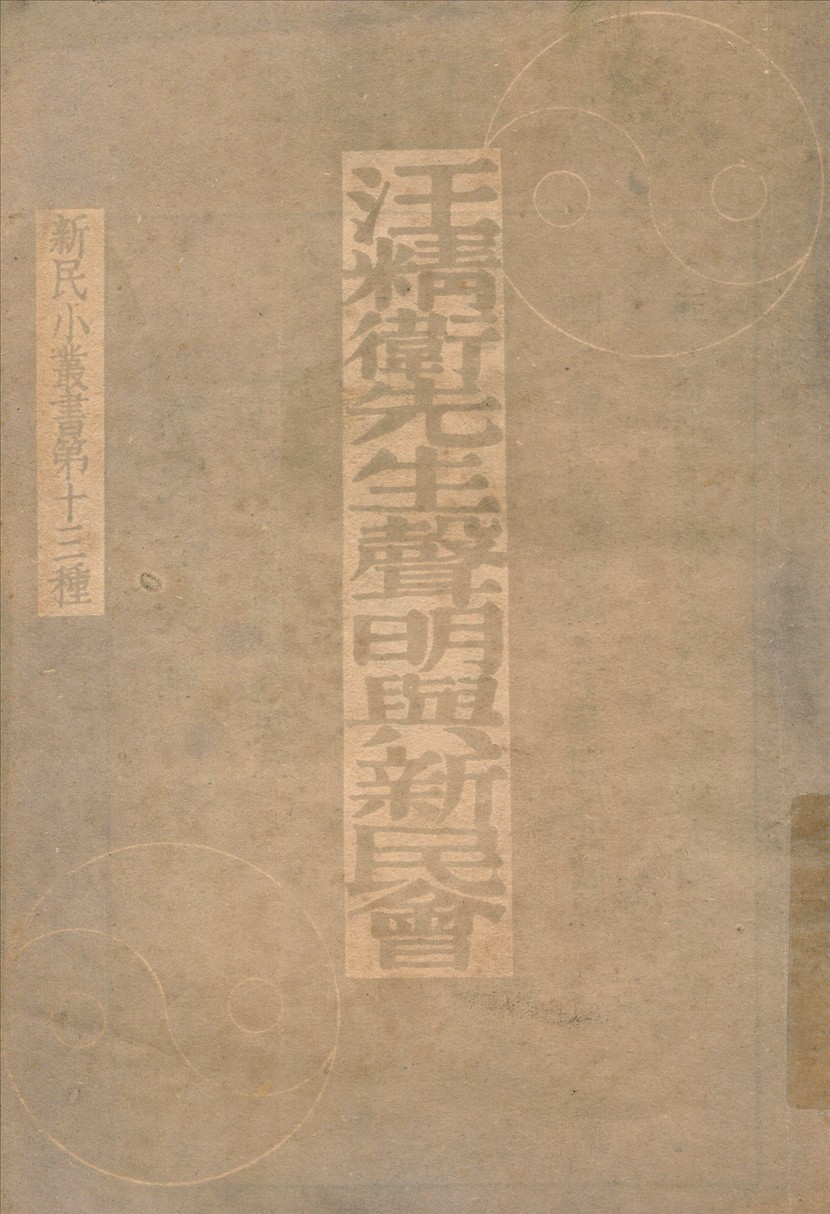 汪精衛先生聲明與新民會
新民小叢書第十三種